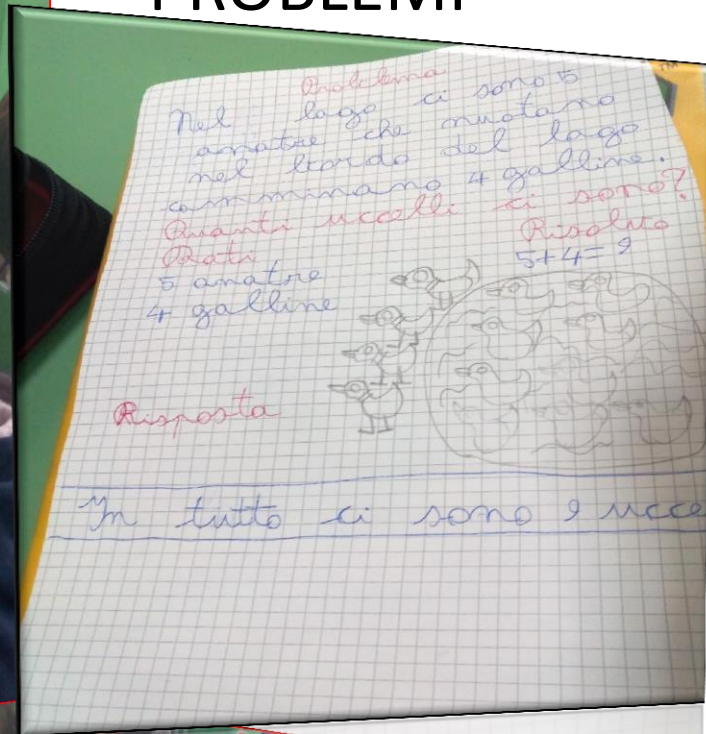 PROBLEMI
Problema
Nel lago ci sono 5
anatre che nuotano
nel bordo del lago
camminano 4 galline.
Quanti uccelli ci sono?
Dati
Risolvo
5 anatre
5+4=9
4 galline
Risposta
In tutto ci sono 9 ucce